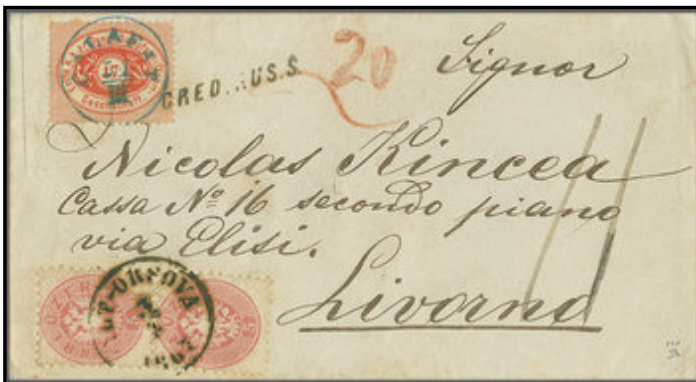 CALAFAT
17
CRED. AUS. S
20
Signor
Nicolas Kincea
Cassa Nº 16 secondo piano
via Elisi.
Livorno
ALT-ORSOVA